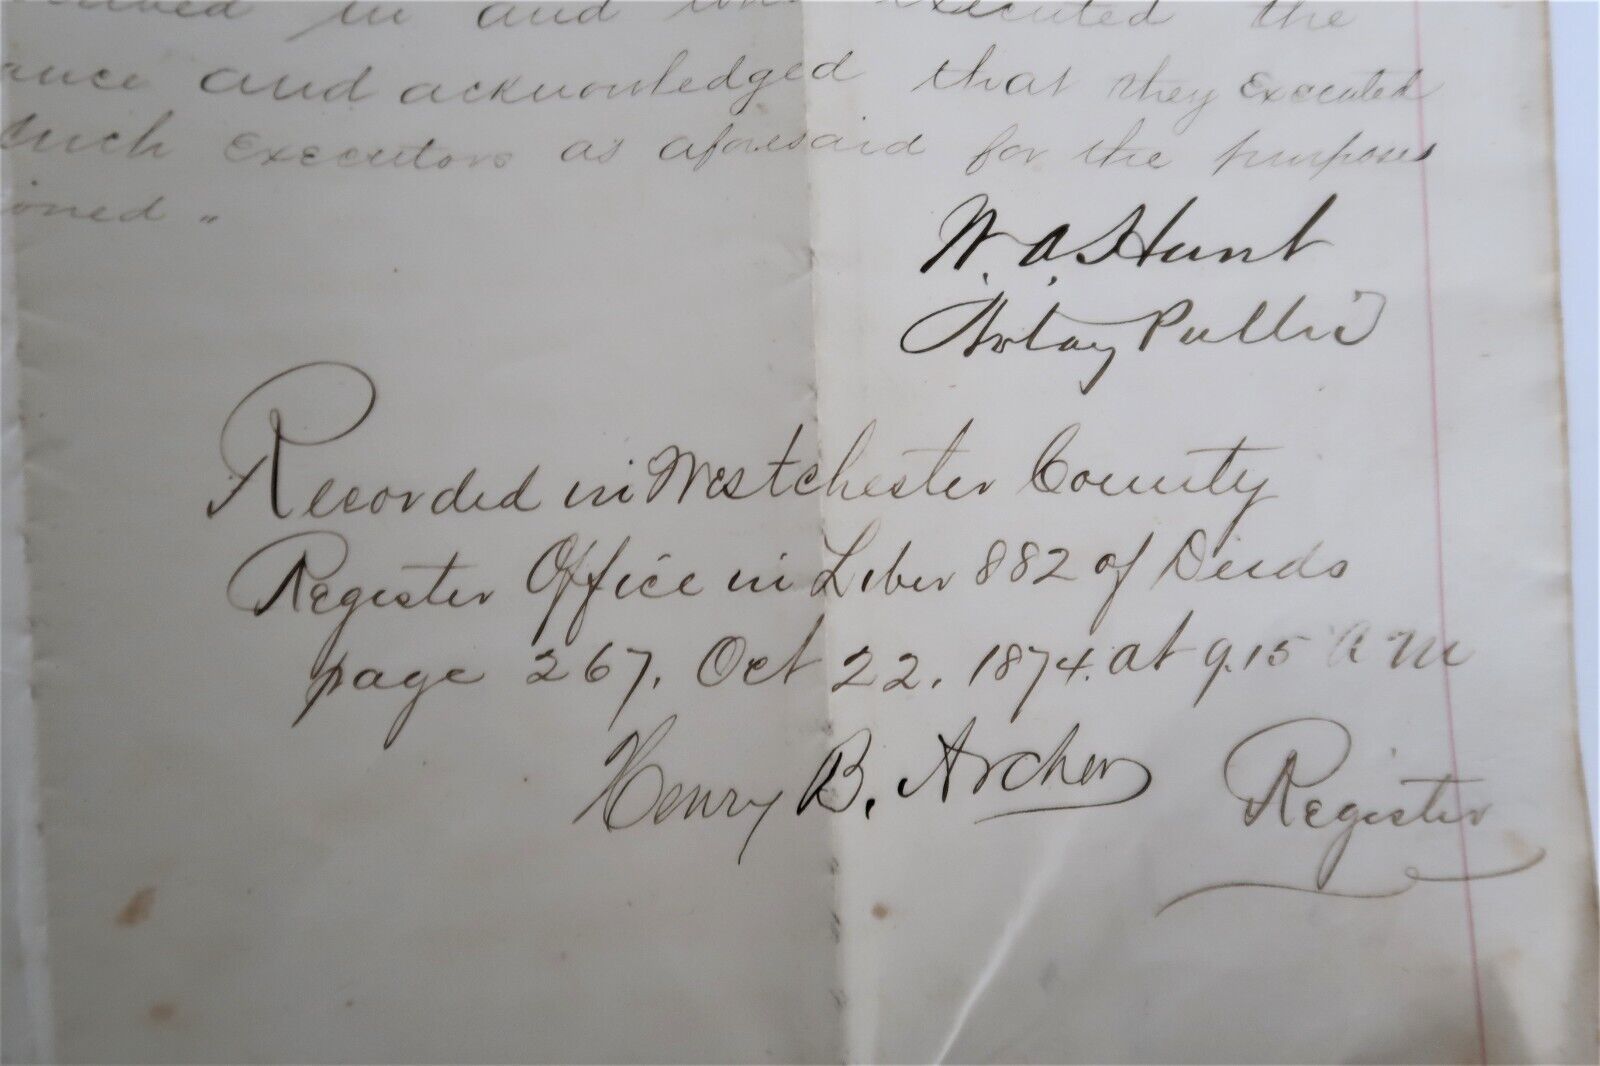 in and who executed the
ance and acknowledged that they executed
such executors as aforesaid for the purposes
ioned.
W. A. Hunt
Notary Public
Recorded in Westchester County
Register Office in Liber 882 of Deeds
page 267, Oct 22, 1874. at 9.15 A M
Henry B. Archer Register